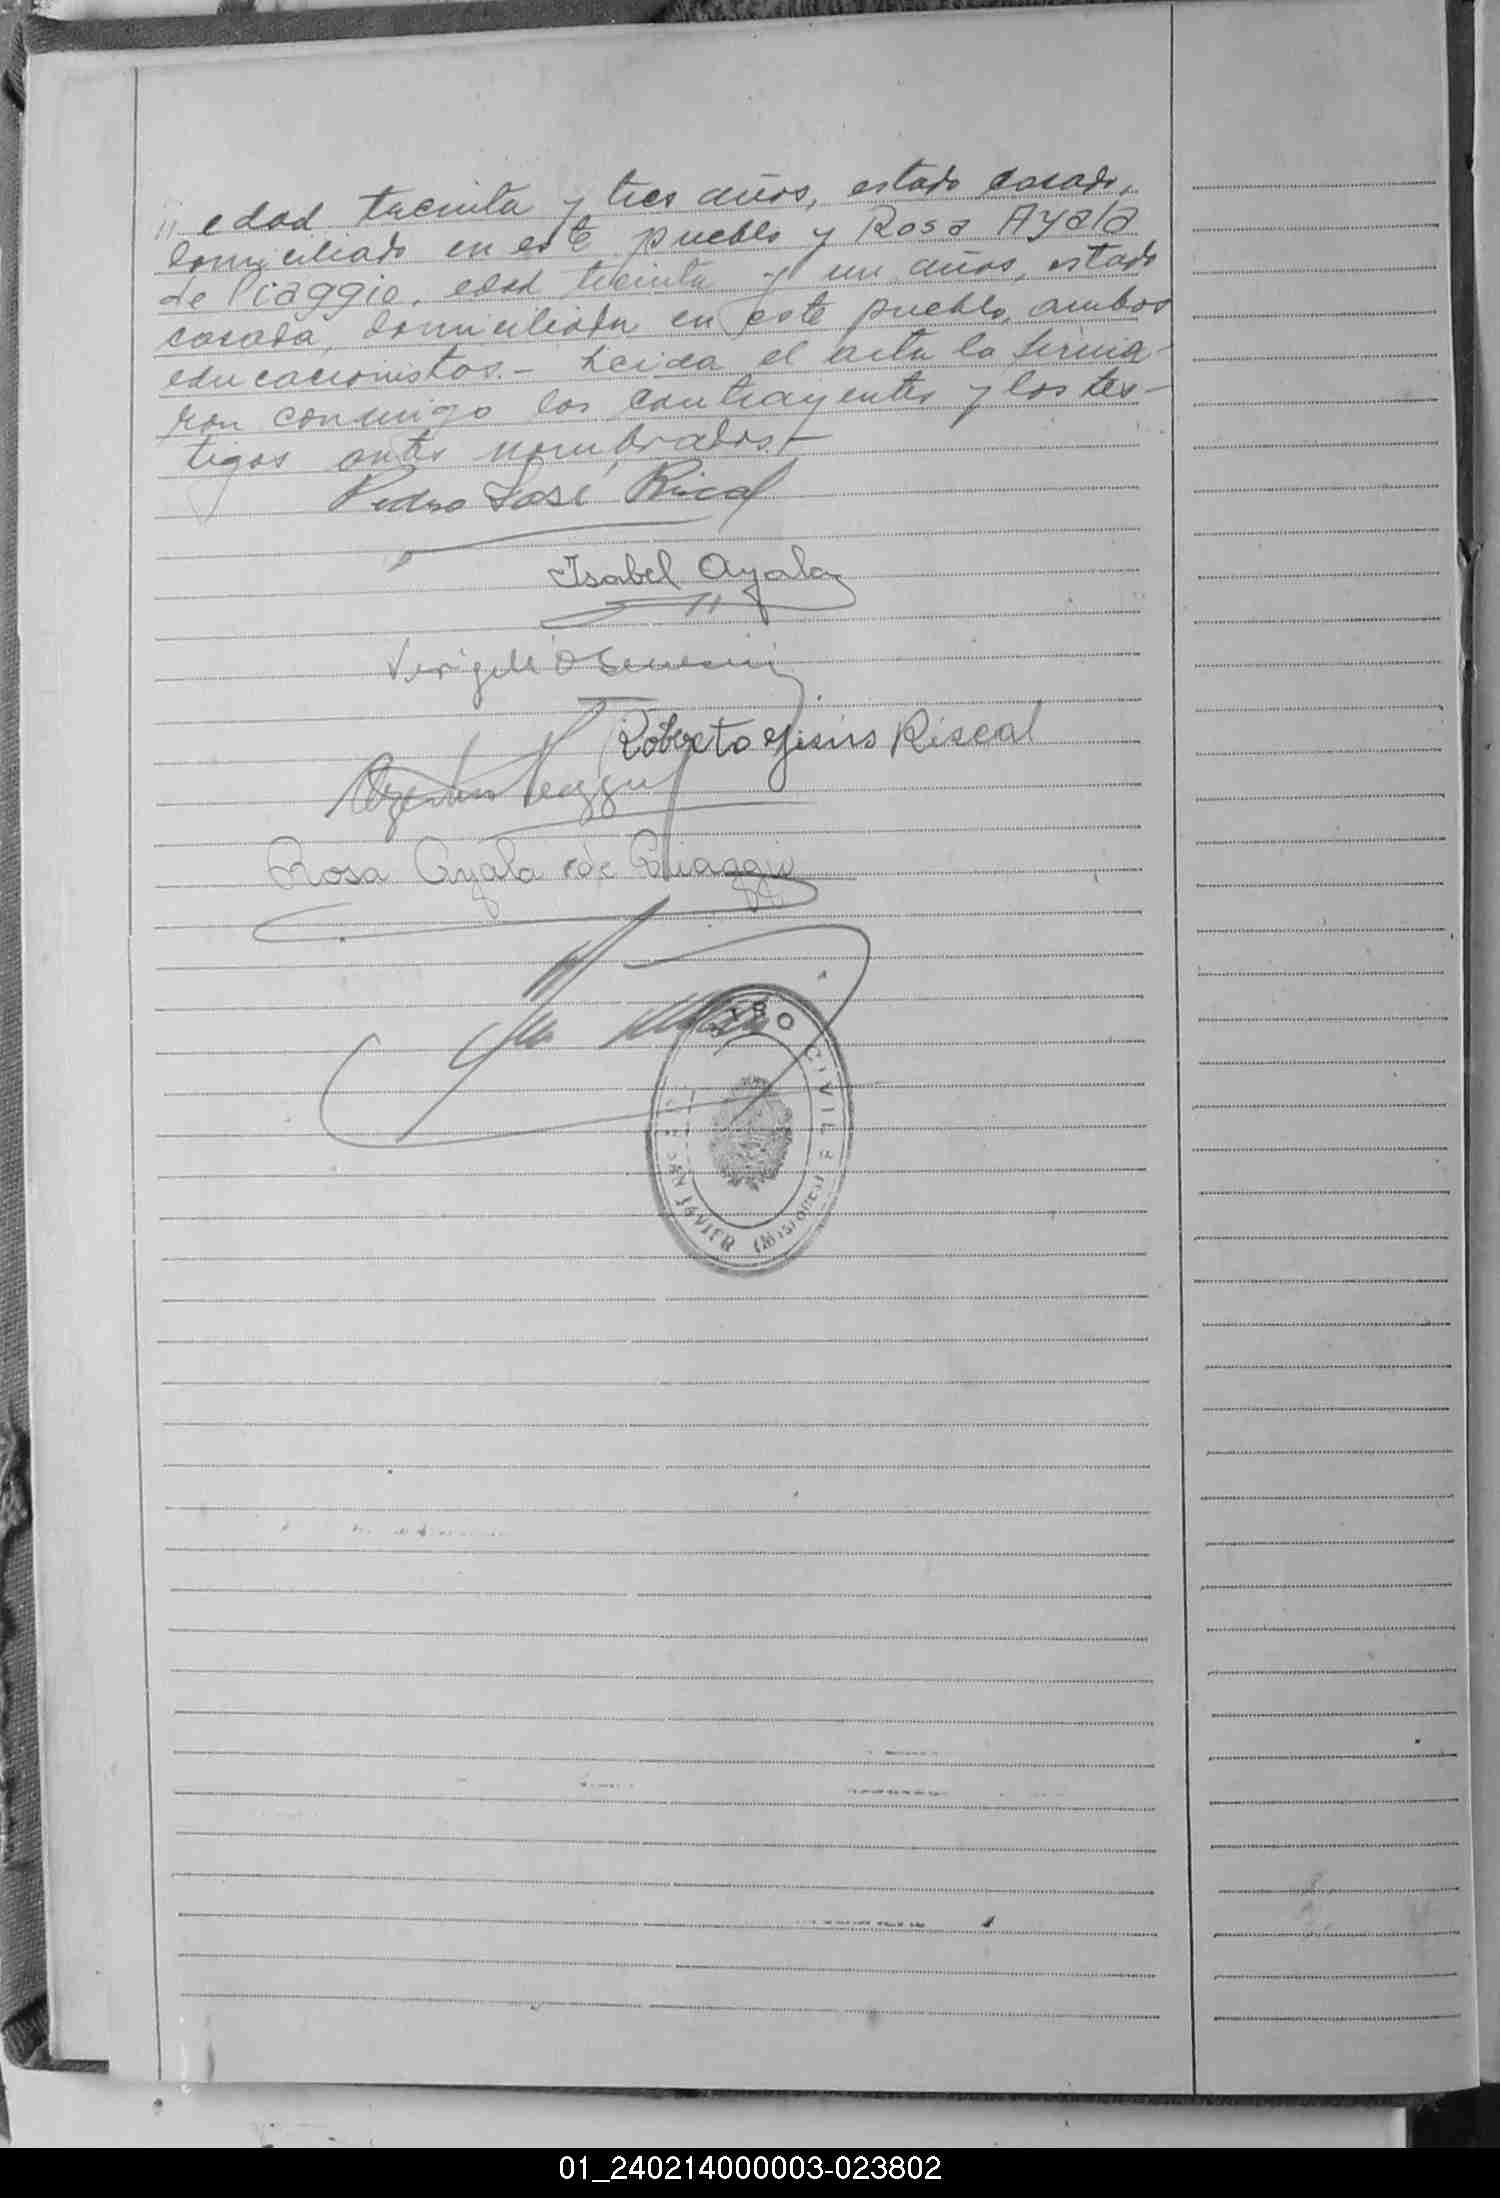 // edad treinta y tres años, estado casado,
domiciliado en este pueblo y Rosa Ayala
de Piaggio, edad treinta y un años, estado
casada, domiciliada en este pueblo, ambos
educacionistas.- Leida el acta la firma-
ron conmigo los contrayentes y los tes-
tigos antes nombrados.-
Pedro José
Isabel Ayala
Roberto Jesús Riscal
Rosa Ayala de Piaggio
CIVIL
SAN JAVIER (Misiones)
01_240214000003-023802